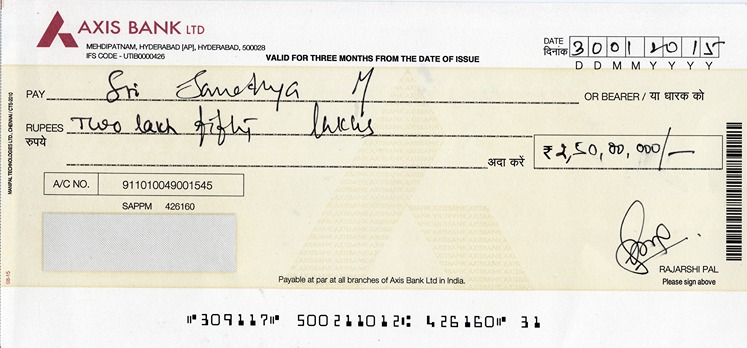 AXIS BANK LTD
MEHDIPATNAM, HYDERABAD [AP], HYDERABAD, 500028
IFS CODE - UTIB0000426
VALID FOR THREE MONTHS FROM THE DATE OF ISSUE
DATE
दिनांक 30012015
D D M M Y Y Y Y
PAY Sri M OR BEARER / या धारक को
RUPEES Two lakh fifty lakhs
रुपये
अदा करें ₹ 2,50,00,000/-
A/C NO. 911010049001545
SAPPM 426160
RAJARSHI PAL
Please sign above
Payable at par at all branches of Axis Bank Ltd in India.
MANIPAL TECHNOLOGIES LTD., CHENNAI / CTS-2010
⑈309117⑈ 500211012⑆ 426160⑈ 31